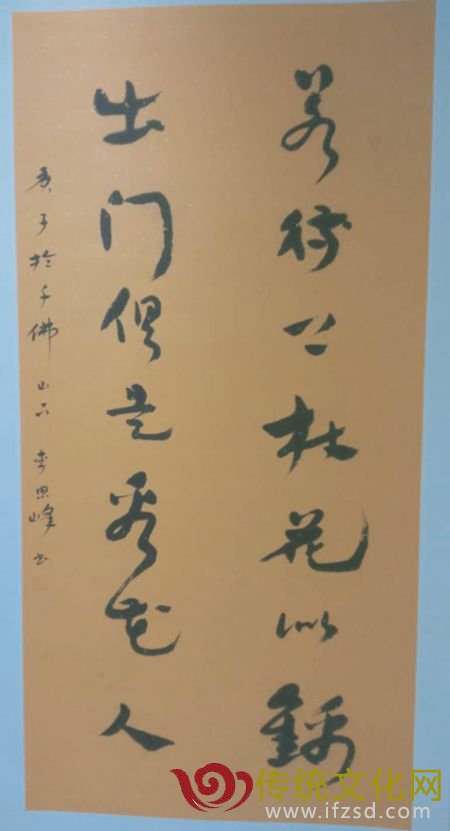 若待上林花似錦
出门俱是看花人
庚子於千佛山下李思峰书
传统文化网
www.ifzsd.com